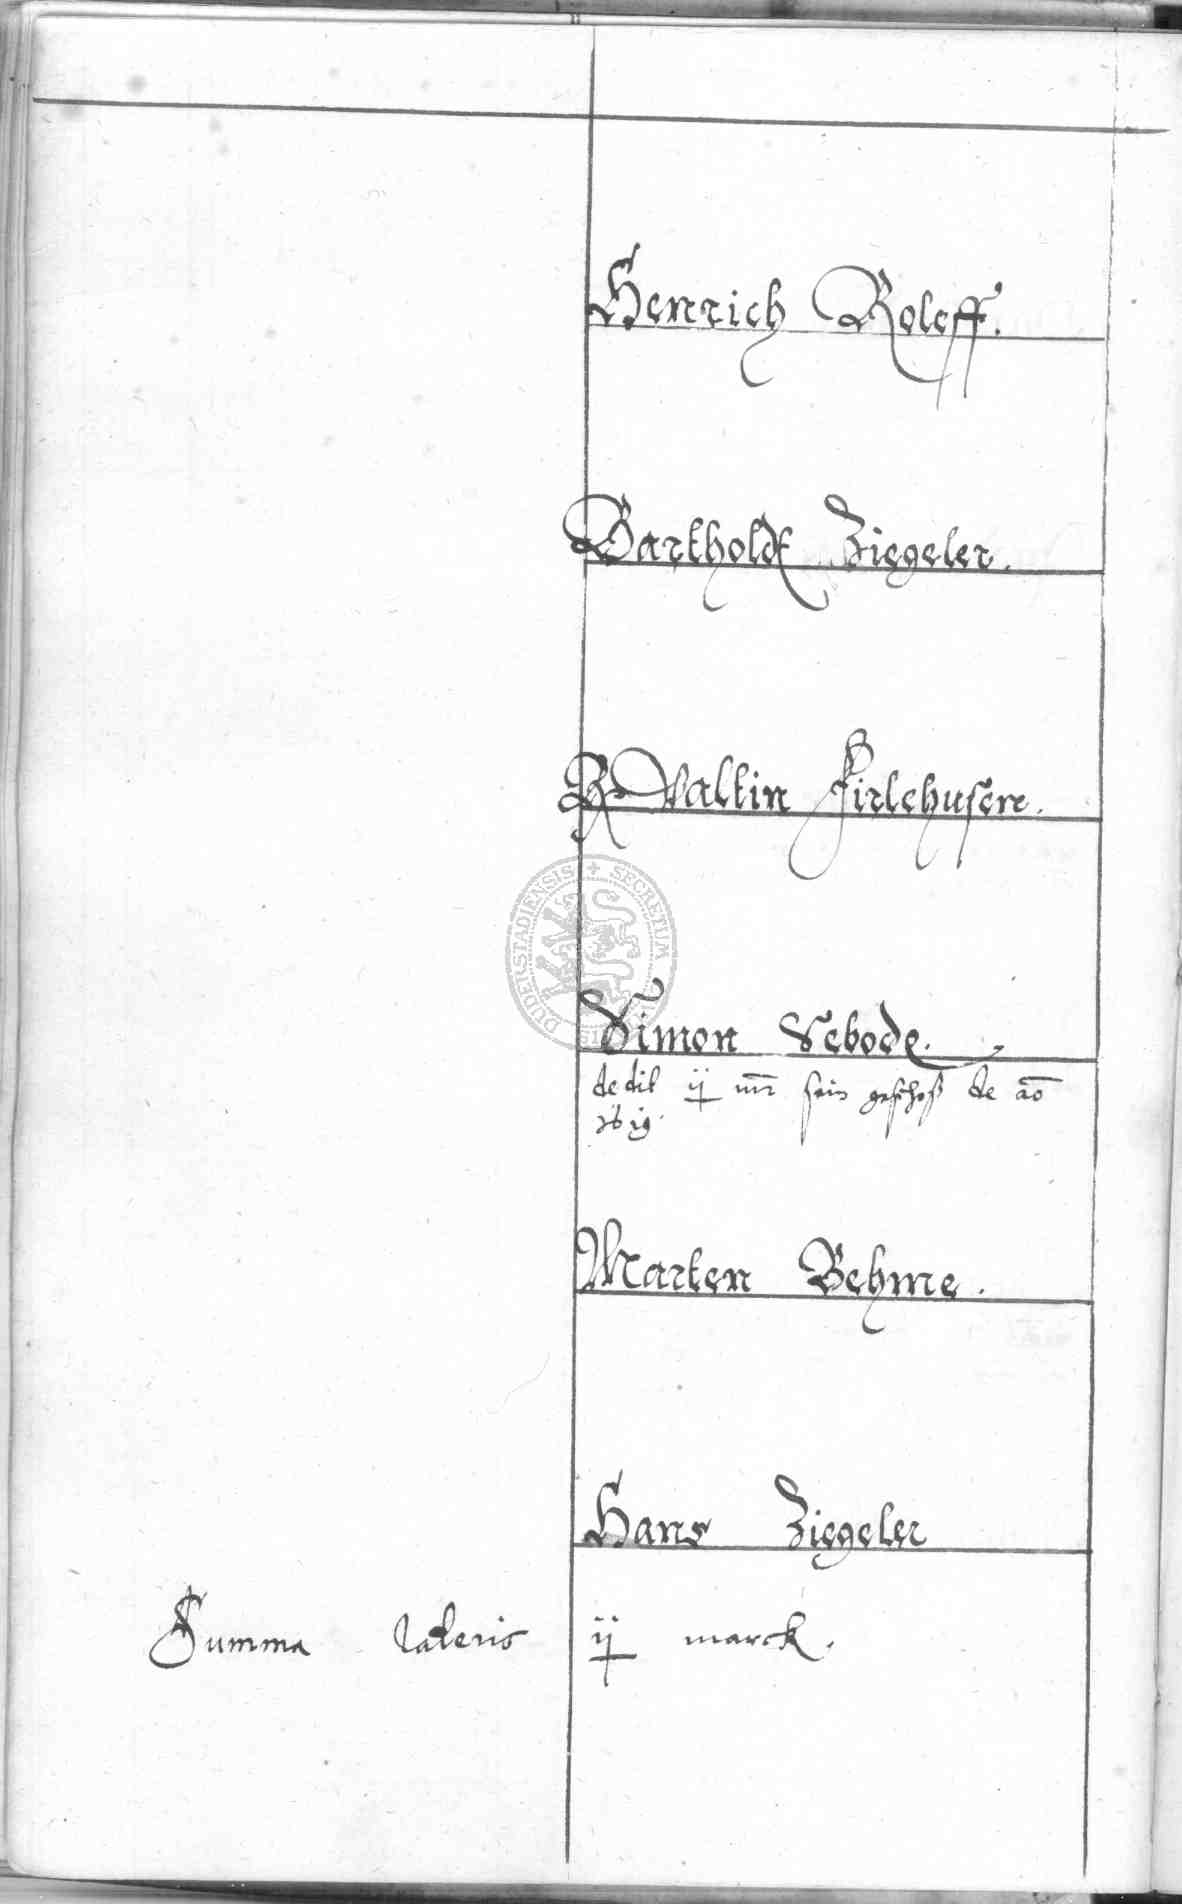 Henrich Roleff.
Bartholdt Ziegeler.
R Valtin Firlehusen.
Simon Sebode.
dedit ij mr sein geschoß de ao
1619.
Marten Behme.
Hans Ziegeler
Summa lateris ij marck.
DUDERSTADIENSIS + SECRETUM